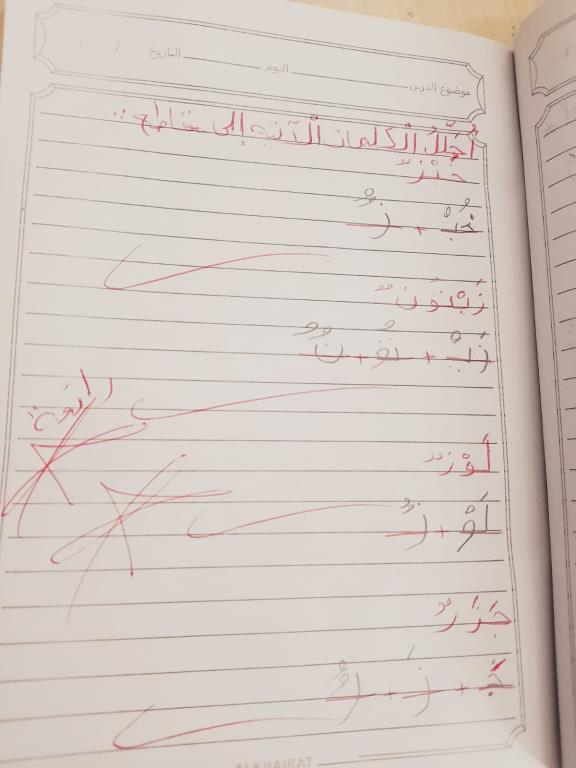 موضوع الدرس اليوم التاريخ / /
أُحَلِّلُ الْكلمات الْآتية إلى مقاطع:
خُبْزٌ
خُبْ + زٌ
زَيْتونٌ
زَيْ + تُو + نٌ
رائعة
لَوْزٌ
لَوْ + زٌ
جَزَرٌ
جَ + زَ + رٌ
AL KHAIRAT